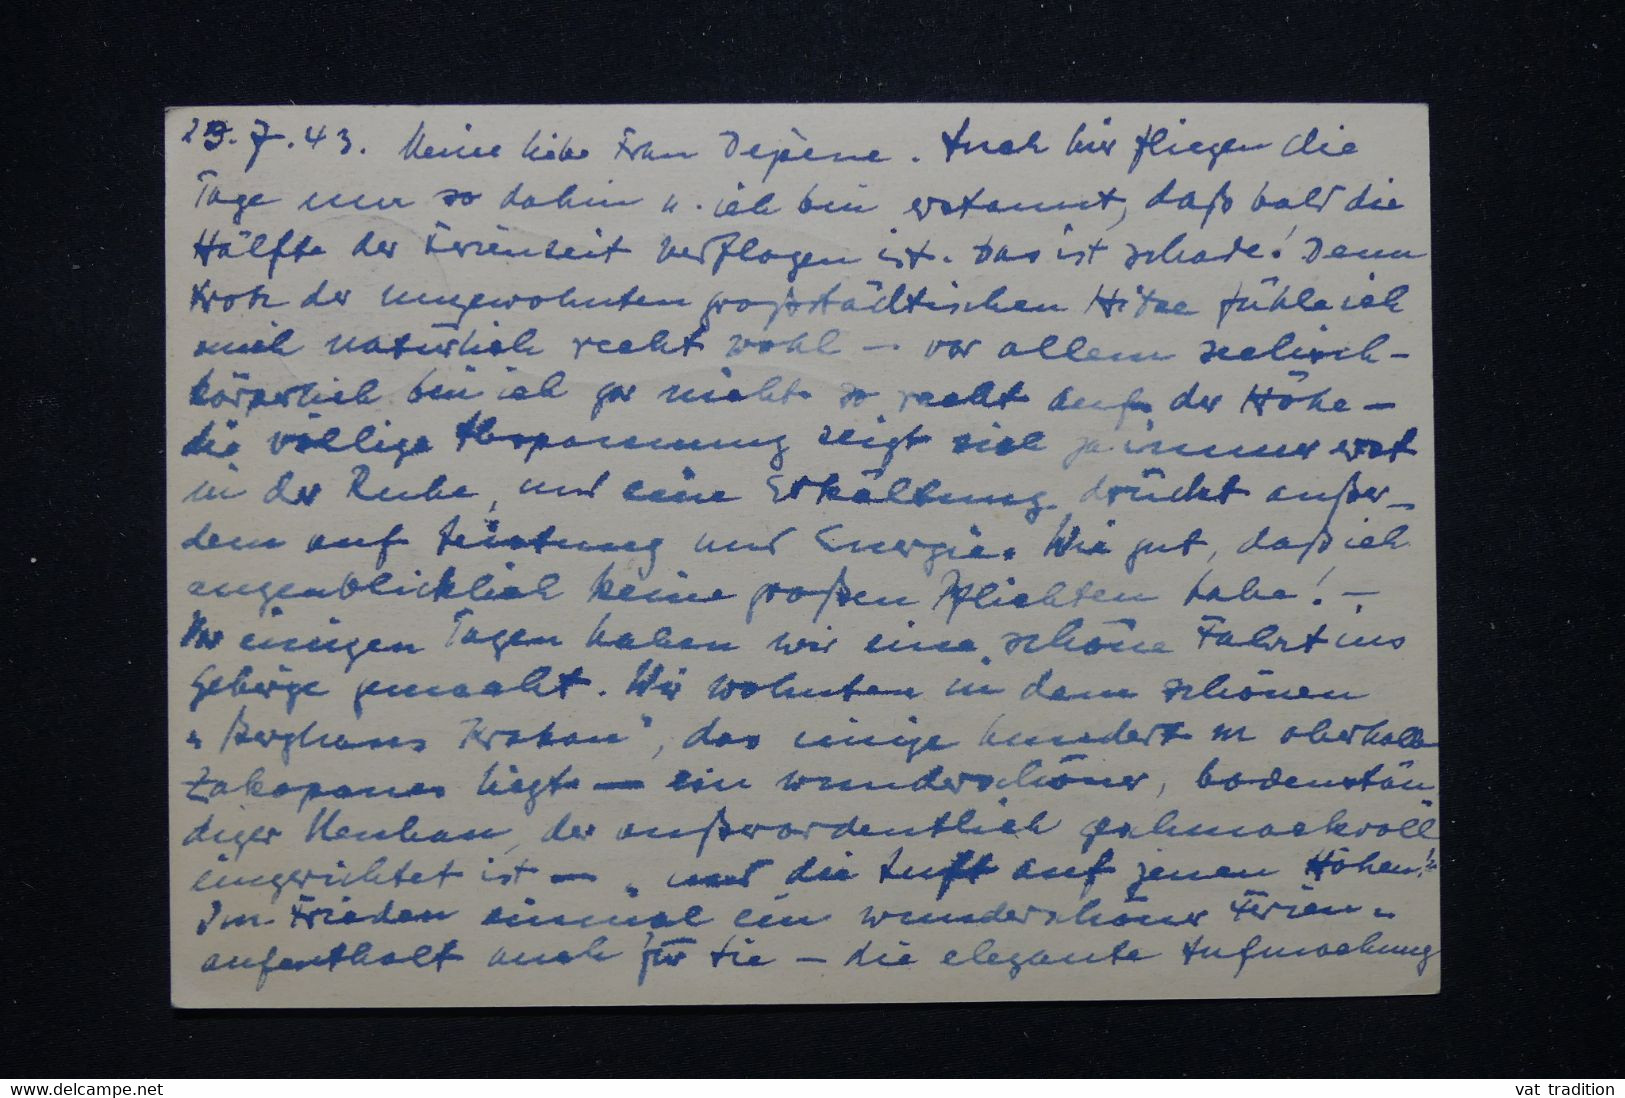 29.7.43. Meine liebe Frau Dejeene. Auch hier fliegen die
Tage nur so dahin u. ich bin erstaunt, daß bald die
Hälfte der Ferienzeit verflogen ist. Das ist schade! Denn
trotz der ungewohnten großstädtischen Hitze fühle ich
mich natürlich recht wohl – vor allem seelisch –
körperlich bin ich gar nicht so recht auf der Höhe –
die völlige Abspannung zeigt sich ja immer erst
in der Ruhe, und eine Erkältung drückt außer-
dem auf Leistung und Energie. Wie gut, daß ich
augenblicklich keine großen Pflichten habe! –
Vor einigen Tagen haben wir eine schöne Fahrt ins
Gebirge gemacht. Wir wohnten in dem schönen
"Berghaus Krakau", das einige hundert m oberhalb
Zakopanes liegt – ein wunderschöner, bodenstän
diger Neubau, der außerordentlich geschmackvoll
eingerichtet ist – und die Luft auf jenen Höhen!
Im Frieden einmal ein wunderschöner Ferien-
aufenthalt auch für Sie – die elegante Aufmachung
delcampe.net
vat_tradition